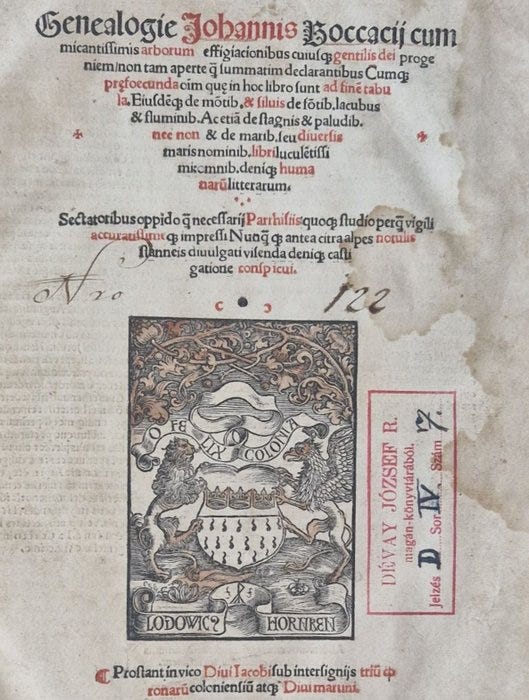 Genealogie Johannis Boccacij cum
micantissimis arborum effigiacionibus cuiusq gentilis dei proge
niem/non tam aperte q̃ summatim declarantibus Cumq
prȩfoecunda oim que in hoc libro sunt ad finē tabu
la. Eiusdēq de mōtib. & siluis de fōtib. lacubus
& fluminib. Ac etiā de stagnis & paludib.
nec non & de marib. seu diuersis
maris nominib. libri luculētissi
mi omnib. deniq huma
narū litterarum.
Sectatoribus oppido q̃ necessarij Parrhisiis quoq studio perq̃ vigili
accuratissime q impressi Nunq̃ q antea citra alpes notulis
stanneis diuulgati visenda deniq casti
gatione conspicui.
Nro 122
O FE
LIX COLONIA
LODOWICꝰ HORNKEN
DÉVAY JÓZSEF R.
magán-könyvtárából.
Jelzés D Sor IV Szám 7.
¶ Prostant in vico Diui Iacobi sub intersignijs triū co
ronarū coloniensiū atq Diui martini.